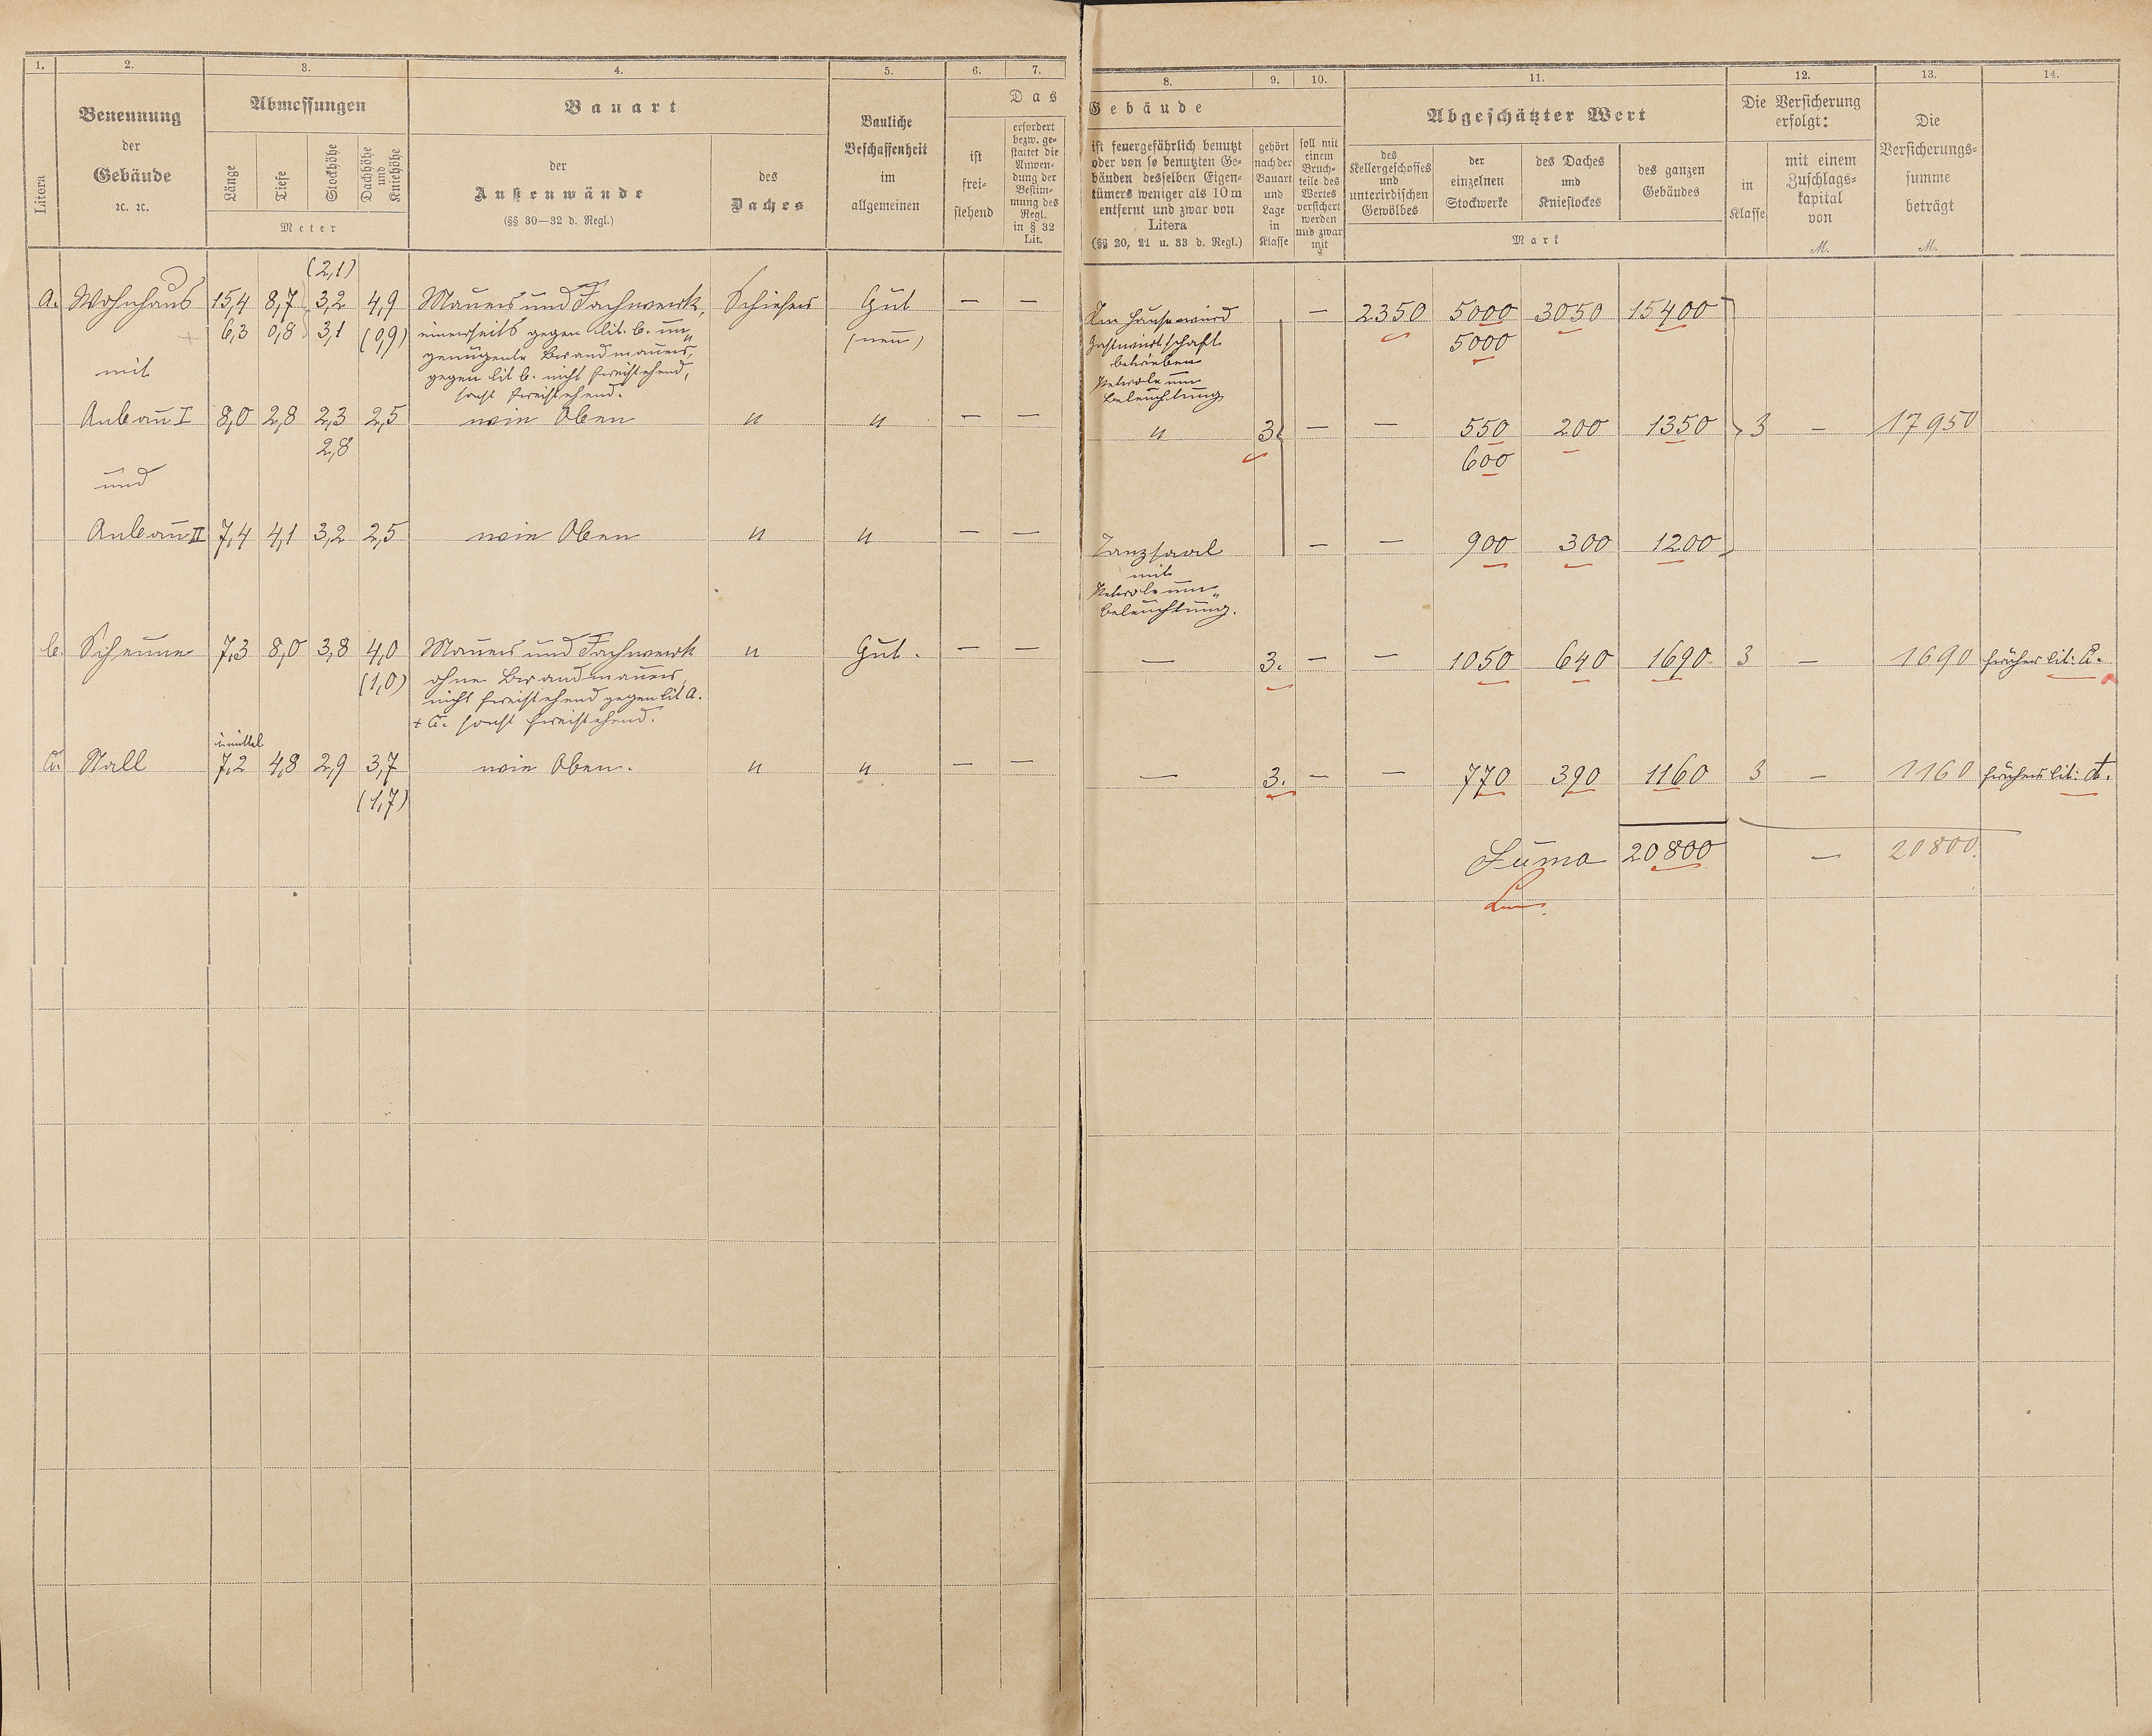 1. 2. 3. 4. 5. 6. 7. 8. 9. 10. 11. 12. 13. 14.
Litera
Benennung
der
Gebäude
ꝛc. ꝛc.
Abmessungen
Länge
Tiefe
Stockhöhe
Dachhöhe
und
Kniehöhe
Meter
Bauart
der
Außenwände
(§§ 30—32 d. Regl.)
des
Daches
Bauliche
Beschaffenheit
im
allgemeinen
Das
ist
frei-
stehend
erfordert
bezw. ge-
stattet die
Anwen-
dung der
Bestim-
mung des
Regl.
in § 32
Lit.
Gebäude
ist feuergefährlich benutzt
oder von so benutzten Ge-
bäuden desselben Eigen-
tümers weniger als 10 m
entfernt und zwar von
Litera
(§§ 20, 21 u. 33 d. Regl.)
gehört
nach der
Bauart
und
Lage
in
Klasse
soll mit
einem
Bruch-
teile des
Wertes
versichert
werden
und zwar
mit
Abgeschätzter Wert
des
Kellergeschosses
und
unterirdischen
Gewölbes
der
einzelnen
Stockwerke
des Daches
und
Kniestockes
des ganzen
Gebäudes
Mark
Die Versicherung
erfolgt:
in
Klasse
mit einem
Zuschlags-
kapital
von
M.
Die
Versicherungs-
summe
beträgt
M.
(2,1)
a. Wohnhaus 15,4 8,7 3,2 4,9 Mauer und Fachwerk, Schiefer Gut — —
+ 6,3 0,8 3,1 (0,9) einerseits gegen lit. b. un„ (neu)
genügende Brandmauer,
mit gegen lit b. nicht freistehend,
sonst freistehend.
Im Hause wird — 2350 5000 3050 15400
Gastwirtschaft 5000
betrieben
Petroleum
Beleuchtung
Anbau I 8,0 2,8 2,3 2,5 wie Oben " " — — " 3 — — 550 200 1350 3 — 17950
2,8 600
und
Anbau II 7,4 4,1 3,2 2,5 wie Oben " " — — Tanzsaal — — 900 300 1200
mit
Petroleum„
beleuchtung.
b. Scheune 7,3 8,0 3,8 4,0 Mauer und Fachwerk " Gut. — — — 3. — — 1050 640 1690 3 — 1690 früher lit: C.
(1,0) ohne Brandmauer,
nicht freistehend gegen lit a.
+ c. sonst freistehend.
i. mittel
c. Stall 7,2 4,8 2,9 3,7 wie Oben. " " — — — 3. — — 770 390 1160 3 — 1160 früher lit: d.
(1,7)
Suma 20800 — 20800.